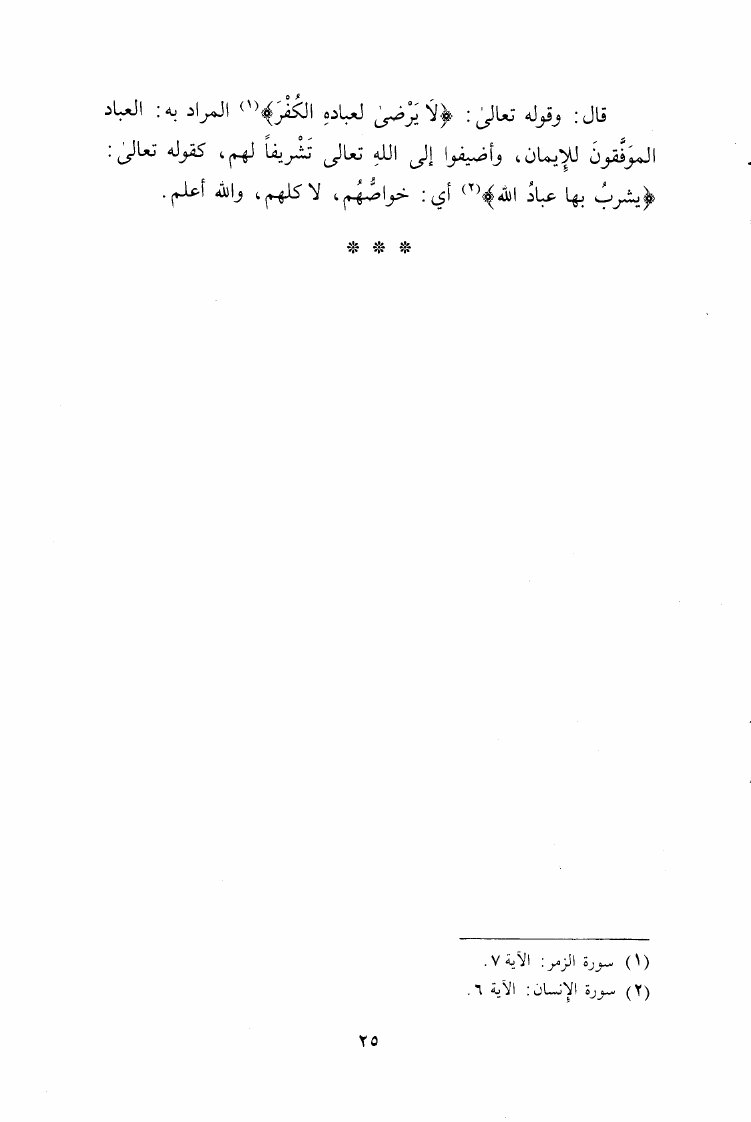 قال: وقوله تعالىٰ: ﴿لَا يَرْضىٰ لعبادهِ الكُفْرَ﴾(١) المراد به: العباد
الموَفَّقونَ للإِيمان، وأضيفوا إلى اللهِ تعالى تَشْريفاً لهم، كقوله تعالىٰ:
﴿يشربُ بها عبادُ الله﴾(٢) أي: خواصُّهُم، لا كلهم، والله أعلم.
* * *
(١) سورة الزمر: الآية ٧.
(٢) سورة الإِنسان: الآية ٦.
٢٥